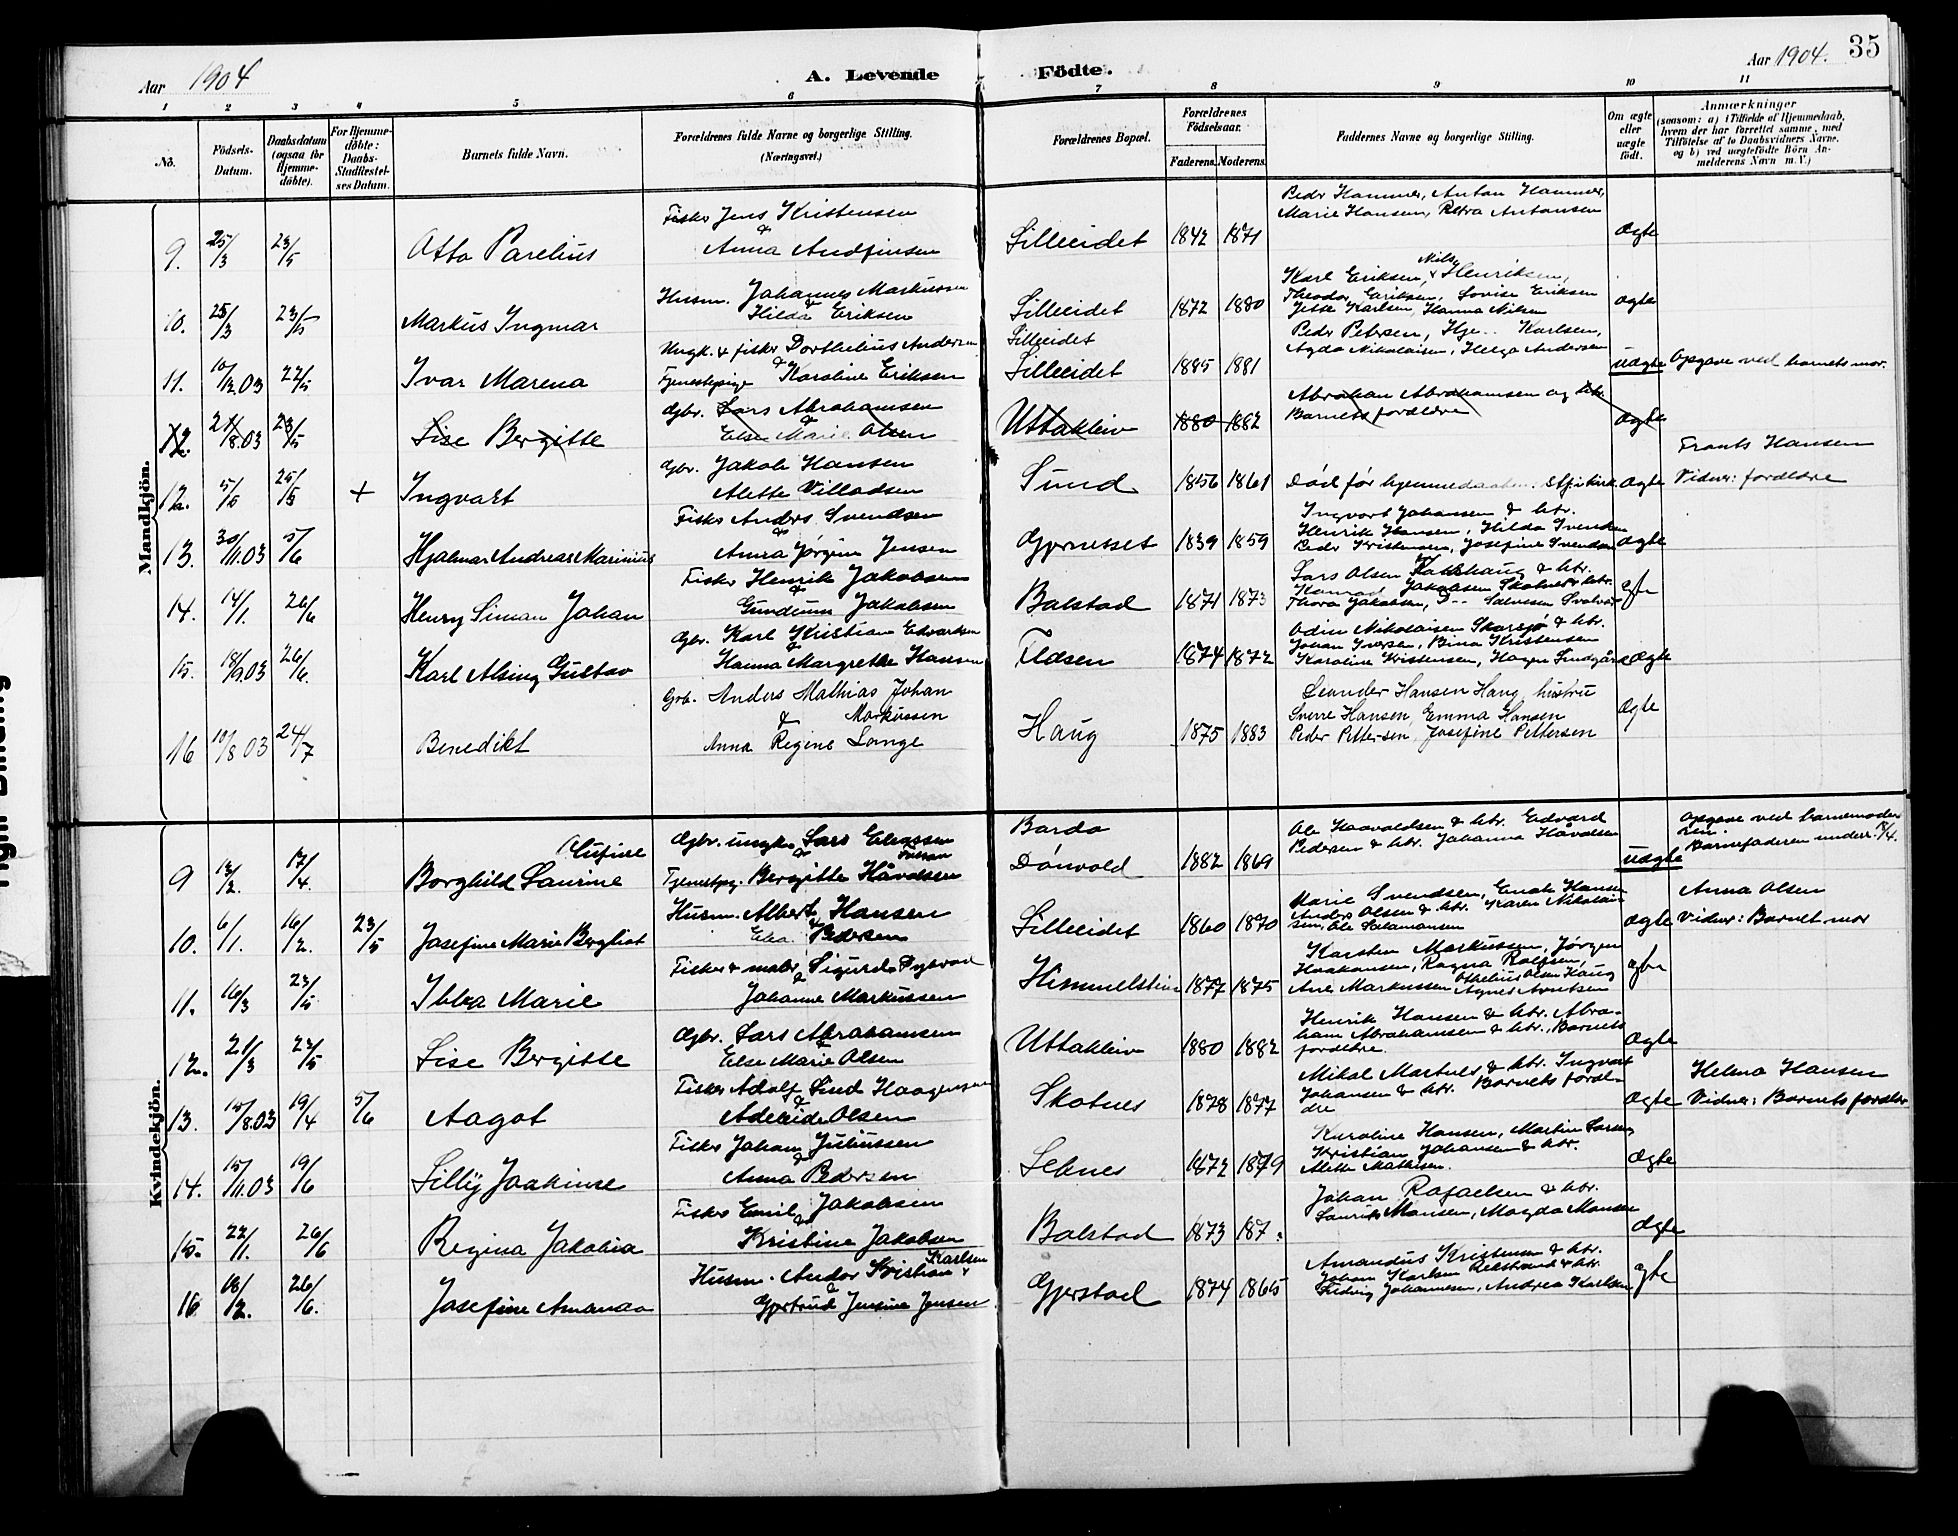 Aar 1904
A. Levende Födte.
Aar 1904. 35
1 2 3 4 5 6 7 8 9 10 11
No. Födsels-Datum. Daabsdatum (ogsaa for Hjemme-döbte). For Hjemme-döbte: Daabs-Stadfæstel-ses Datum. Barnets fulde Navn. Forældrenes fulde Navne og borgerlige Stilling. (Næringsvei.) Forældrenes Bopæl. Forældrenes Födselsaar. Faderens. Moderens. Faddernes Navne og borgerlige Stilling. Om ægte eller uægte födt. Anmærkninger (saasom: a) i Tilfælde af Hjemmedaab, hvem der har forrettet samme, med Tilföielse af to Daabsvidners Navne, og b) ved uægtefödte Börn An-melderens Navn m. V.)
Mandkjön.
9. 25/3 23/5 Otto Parelius Fisker Jens Kristensen & Anna Andfinsen Lilleeidet 1842 1871 Peder Hammer, Anton Hammer, Marie Hansen, Petra Antonsen ægte
10. 25/3 23/5 Markus Ingmar Husm. Johannes Markussen & Hilda Eriksen Lilleeidet 1872 1880 Karl Eriksen, Nils Henriksen, Theodor Eriksen, Lovise Eriksen Jette Karlsen, Hanna Nilsen ægte
11. 10/12.03 22/5 Ivar Marena Ungk. & fisker Dorthelius Andersen & Tjenestepige Karoline Eriksen Lilleeidet Lilleeidet 1885 1881 Peder Petersen, Karlsen, Agda Nikolaisen, Helga Andersen uægte Opgave ved barnets mor.
12. 21/8.03 23/5 Lise Bergitte Gbr. Lars Abrahamsen & Else Marie Olsen Uttakleiv 1880 1882 Abraham Abrahamsen og htr. Barnets forældre ægte
12. 5/5 25/5 + Ingvart Gbr. Jakob Hansen Alette Villadsen Sund 1856 1861 Død før hjemmedaaben ægte Frants Hansen Vidner: forældre
13. 30/11.03 5/6 Hjalmar Andreas Marinius Fisker Anders Svendsen & Anna Jørgine Jensen Gjernesset 1839 1859 Ingvart Johansen & htr. Henrik Hansen, Hilda Svendsen Peder Kristensen, Josefine Svendsen ægte
14. 14/1. 26/6 Henry Simon Johan Fisker Henrik Jakobsen & Jakobsen Balstad 1871 1873 Lars Olsen & htr. Konrad Jakobsen Skotnes & htr. Thora Jakobsen, Salvesen Svolvær ægte
15. 18/9.03 26/6. Karl Alsing Gustav Gbr. Karl Kristian Edvartsen & Hanna Margrethe Hansen 1874 1872 Odin Nikolaisen Skarsjø & htr. Johan Iversen, Bina Kristensen Karoline Kristensen, Hagen ægte
16 10/8 03 24/7 Benedikt Grb. Anders Mathias Johan Markussen & Anna Regine Lange Haug 1875 1883 Leander Hansen Haug, hustru Sverre Hansen, Emma Hansen Peder Pettersen, Josefine Pettersen ægte
Kvindekjön.
9 13/2. 17/4. Borghild Laurine Gbr. ungk. Lars & Tjenestpg. Bergitte Håvoldsen Bardo Dönvold 1882 1869 Ole Haavoldsen & htr. Edvard Pedersen & htr. Johanna Håvoldsen uægte Opgave ved barnemoderen. Barnefaderen underr.
10. 6/1. 16/2. 23/5 Josefine Marie Bergliot Husm. Albert Hansen & Pedersen Lilleeidet 1860 1870 Marie Svendsen, Hansen Anders Olsen & htr. Karen Nikolaisen, Ole Salamonsen ægte Anna Olsen Vidner: Barnet mor
11. 16/3 23/5 Marie Fisker & maler Sigurd & Johanne Markussen Himmelstein 1877 1875 Karsten Markussen, Jörgen Haakonsen, Ragna Rolfsen, Othelius Olsen Haug Ane Markussen Agnes Arntsen ægte
12. 21/3 23/5 Lise Bergitte Gbr. Lars Abrahamsen & Else Marie Olsen Uttakleiv 1880 1882 Henrik Hansen & htr. Abraham Abrahamsen & htr., Barnets forældre. ægte
13. 10/8.03 19/4 5/6 Aagot Fisker Adolf Lind Haagensen & Adelaide Olsen Skotnes 1878 1877 Mikal Martnes & htr. Ingvart Johansen & htr. Barnets forældre ægte Helma Hansen Vidner: Barnets forældre
14. 15/11.03 19/6 Lilly Joakime Fisker Johan Juliussen & Anna Pedersen Leknes 1872 1879 Karoline Hansen, Martin Larsen, Kristian Johansen & htr. Alette Mathisen. ægte
15. 22/1. 26/6 Regina Jakobia Fisker Emil Jakobsen & Kristine Jakobsen Balstad 1873 187 Johan Rafaelsen & htr. Laurits Monsen, Magda Monsen ægte
16 18/2. 26/6. Josefine Amanda Husm. Andor Kristian Karlsen & Gjertrud Jensine Jensen Gjerstad 1874 1865 Amandus Kristensen & htr. Johan Karlsen & htr. Johannesen, Andrea Karlsen ægte